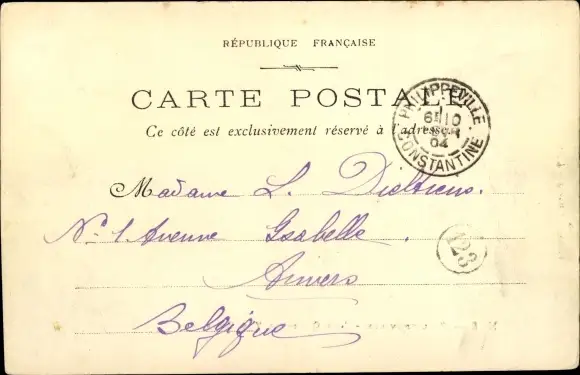 RÉPUBLIQUE FRANÇAISE
CARTE POSTALE
Ce côté est exclusivement réservé à l'adresse
PHILIPPEVILLE
6E 10
04
CONSTANTINE
Madame L. Dieltiens.
N° 1 Avenue Isabelle.
123
Anvers
Belgique